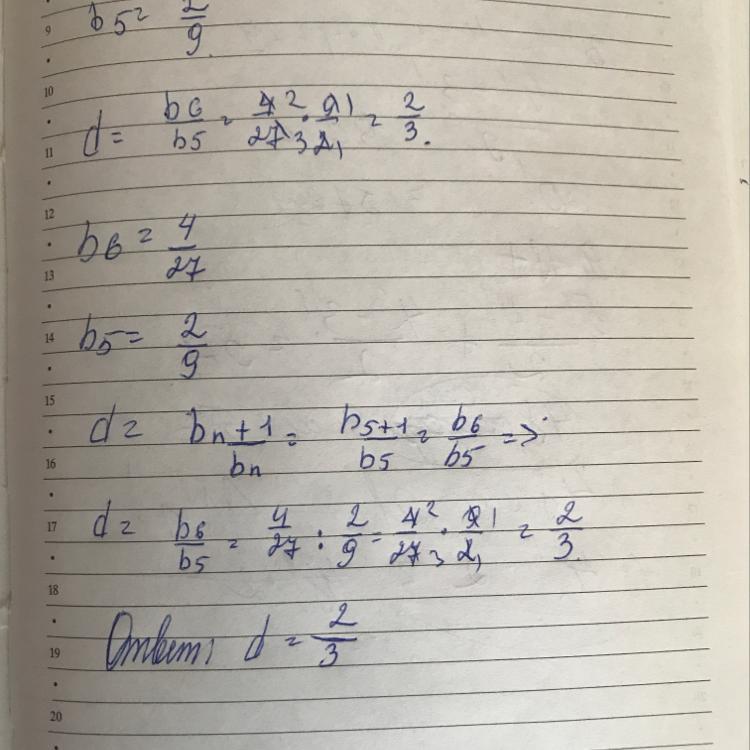 9 b5 = 2/9
10
11 d = b6/b5 = 4²/27₃ · 9¹/2₁ = 2/3.
12
13 b6 = 4/27
14 b5 = 2/9
15
16 d = bn+1/bn = b5+1/b5 = b6/b5 =>
17 d = b6/b5 = 4/27 : 2/9 = 4²/27₃ · 9¹/2₁ = 2/3
18
19 Ответ: d = 2/3
20